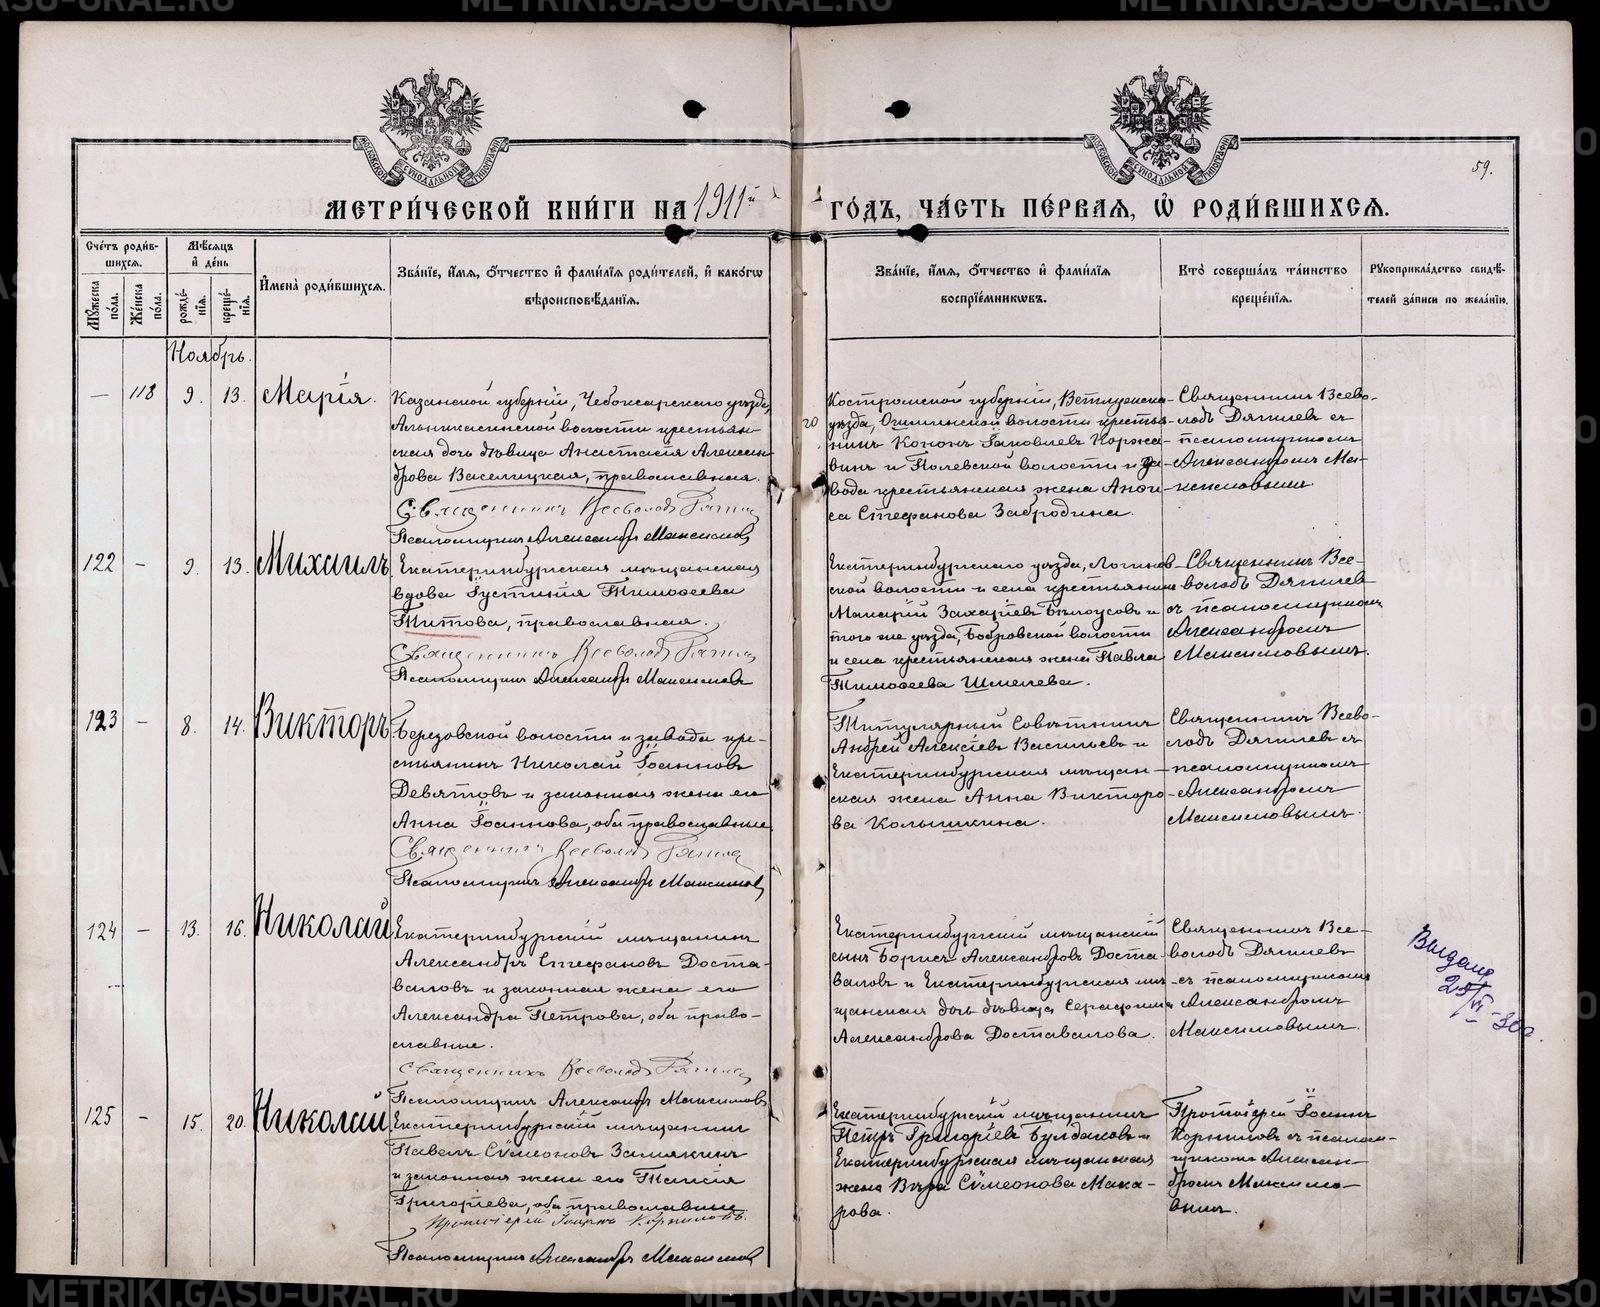 59.
МЕТРИ́ЧЕСКОЙ КНИ́ГИ НА 1911й ГО́ДЪ, ЧА́СТЬ ПЕ́РВАЯ, Ѡ҆ РОДИ́ВШИХСЯ.
Сче́тъ роди́в-
шихся.
Мѣ́сяцъ
и҆ де́нь
Му́жеска по́ла.
Же́нска по́ла.
рожде́-
нїя.
креще́-
нїя.
И҆мена̀ роди́вшихся.
Зва́нїе, и҆́мя, о҆́тчество и҆ фами́лїя роди́телей, и҆ како́гѡ
вѣроисповѣ́данїя.
Зва́нїе, и҆́мя, о҆́тчество и҆ фами́лїя
воспрїе́мникѡвъ.
Кто̀ соверша́лъ та́инство
креще́нїя.
Рукоприкла́дство свидѣ́-
телей за́писи по жела́нїю.
Ноябрь.
— 118 9. 13. Марія.
Казанской губерніи, Чебоксарскаго уѣзда,
крестьян-
ская дочь дѣвица Анастасія Алексан-
дрова Васелицкая, православная.
Священникъ Всеволодъ
Псаломщикъ Александръ Максимовъ
Костромской губерніи, Ветлужска-
го уѣзда, волости крестья-
нинъ Кононъ Іаковлевъ Коржа-
винъ и Полевской волости и за-
вода крестьянская жена Анфи-
са Стефанова Забродина.
Священникъ Всево-
лодъ Дягилев съ
псаломщикомъ
Александромъ Ма-
ксимовымъ
122 — 9. 13. Михаилъ
Екатеринбургская мѣщанская
вдова Іустинія Тимоѳеева
Титова, православная.
Священникъ Всеволодъ
Псаломщикъ Александръ Максимовъ
Екатеринбургскаго уѣзда, Логинов-
ской волости и села крестьянинъ
Макарій Захаріевъ Бѣлоусовъ и
того же уѣзда, Бобровской волости
и села крестьянская жена Павла
Тимоѳеева Шмелева.
Священникъ Все-
володъ Дягилев
съ псаломщикомъ
Александромъ
Максимовымъ.
123 — 8. 14. Викторъ
Березовской волости и завода кре-
стьянинъ Николай Іоанновъ
Девятовъ и законная жена его
Анна Іоаннова, оба православные.
Священникъ Всеволодъ
Псаломщикъ Александръ Максимовъ
Титулярный Совѣтникъ
Андрей Алексіевъ Васильевъ и
Екатеринбургская мѣщан-
ская жена Анна Викторо-
ва Колышкина.
Священникъ Всево-
лодъ Дягилев съ
псаломщикомъ
Александромъ
Максимовымъ.
124 — 13. 16. Николай
Екатеринбургскій мѣщанинъ
Александръ Стефановъ Доста-
валовъ и законная жена его
Александра Петрова, оба право-
славные.
Священникъ Всеволодъ
Псаломщикъ Александръ Максимовъ
Екатеринбургскій мѣщанскій
сынъ Борисъ Александровъ Доста-
валовъ и Екатеринбургская мѣ-
щанская дочь дѣвица Серафима
Александрова Доставалова.
Священникъ Все-
володъ Дягилевъ
съ псаломщикомъ
Александромъ
Максимовымъ.
Выдана
25/VI-30г.
125 — 15. 20. Николай
Екатеринбургскій мѣщанинъ
Павелъ Сѵмеоновъ Замякинъ
и законная жена его Таисія
Григоріева, оба православные
Протоіерей Іоаннъ Корниловъ.
Псаломщикъ Александръ Максимовъ
Екатеринбургскій мѣщанинъ
Петръ Григоріевъ Булдаковъ и
Екатеринбургская мѣщанская
жена Вѣра Сѵмеонова Мака-
рова.
Протоіерей Іоаннъ
Корниловъ съ псалом-
щикомъ Алексан-
дромъ Максимо-
вымъ.
METRIKI.GASO-URAL.RU